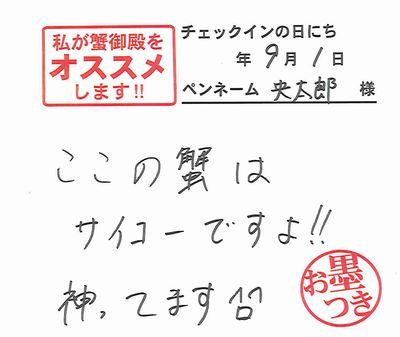 私が蟹御殿を
オススメ
します!!
チェックインの日にち
年 9月 1日
ペンネーム 央太郎 様
ここの蟹は
サイコーですよ!!
神ってます^^
お墨つき